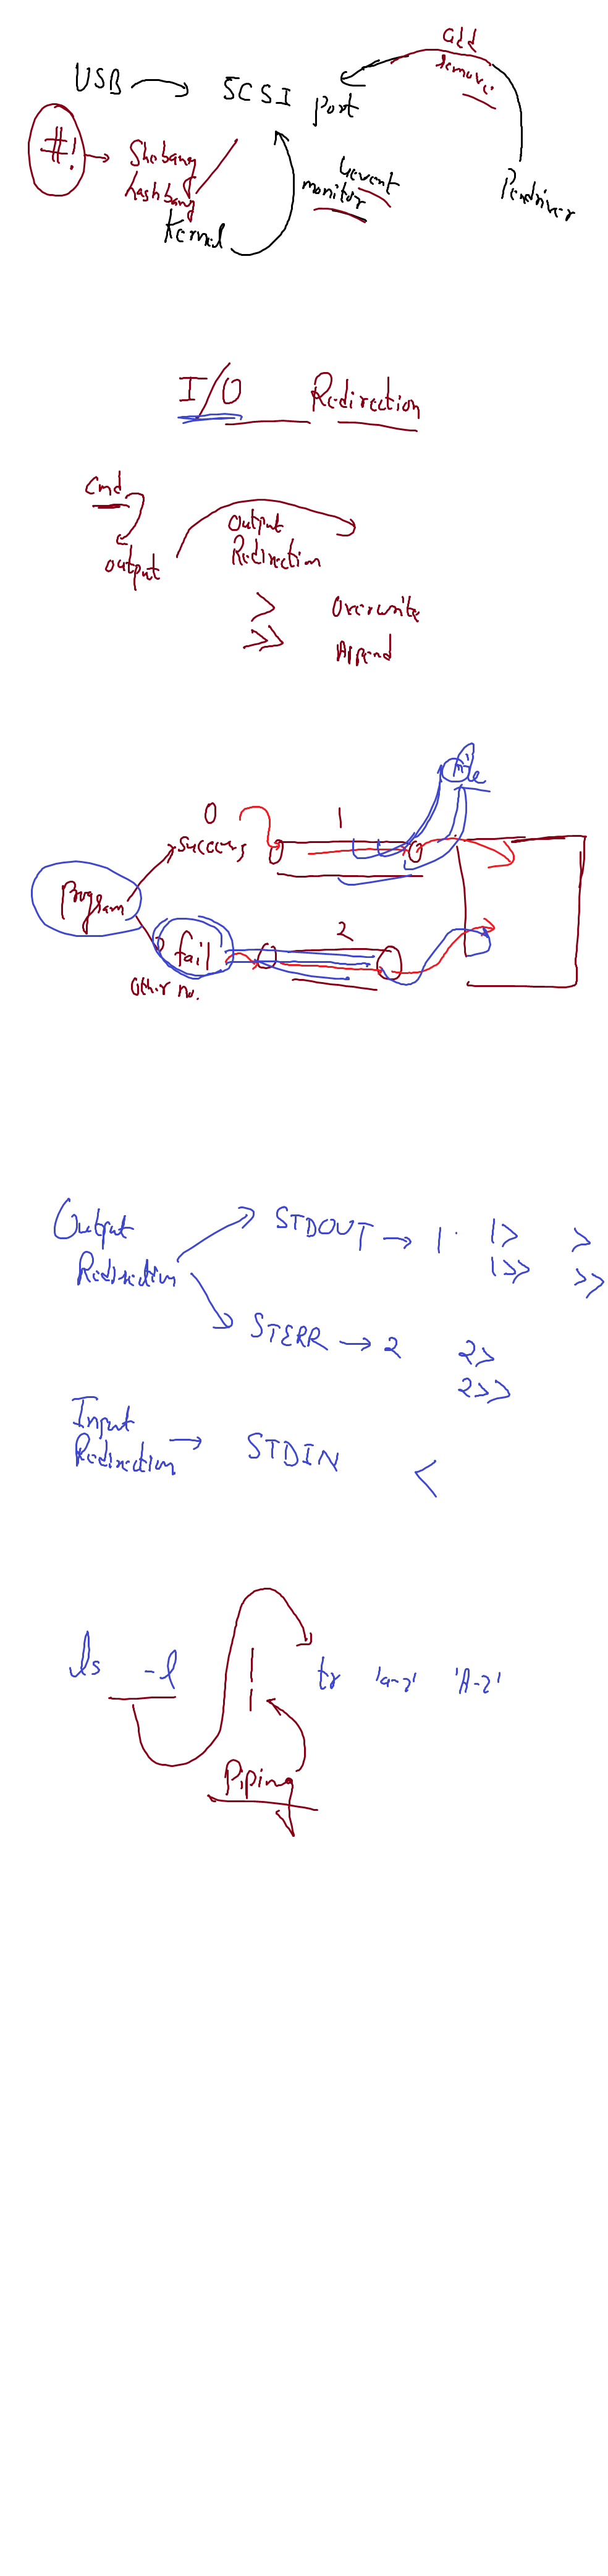 add
remove
USB SCSI port
#! Shebang
hashbang
Uevent
monitor
Pendriver
Kernel
I/O Redirection
Cmd
output
Output
Redirection
> Overwrite
>> Append
file
0 1
success
Program
2
fail
Other no.
Output
Redirection
STDOUT → 1 1> >
1>> >>
STERR → 2 2>
2>>
Input
Redirection → STDIN <
ls -l | tr 'a-z' 'A-Z'
Piping